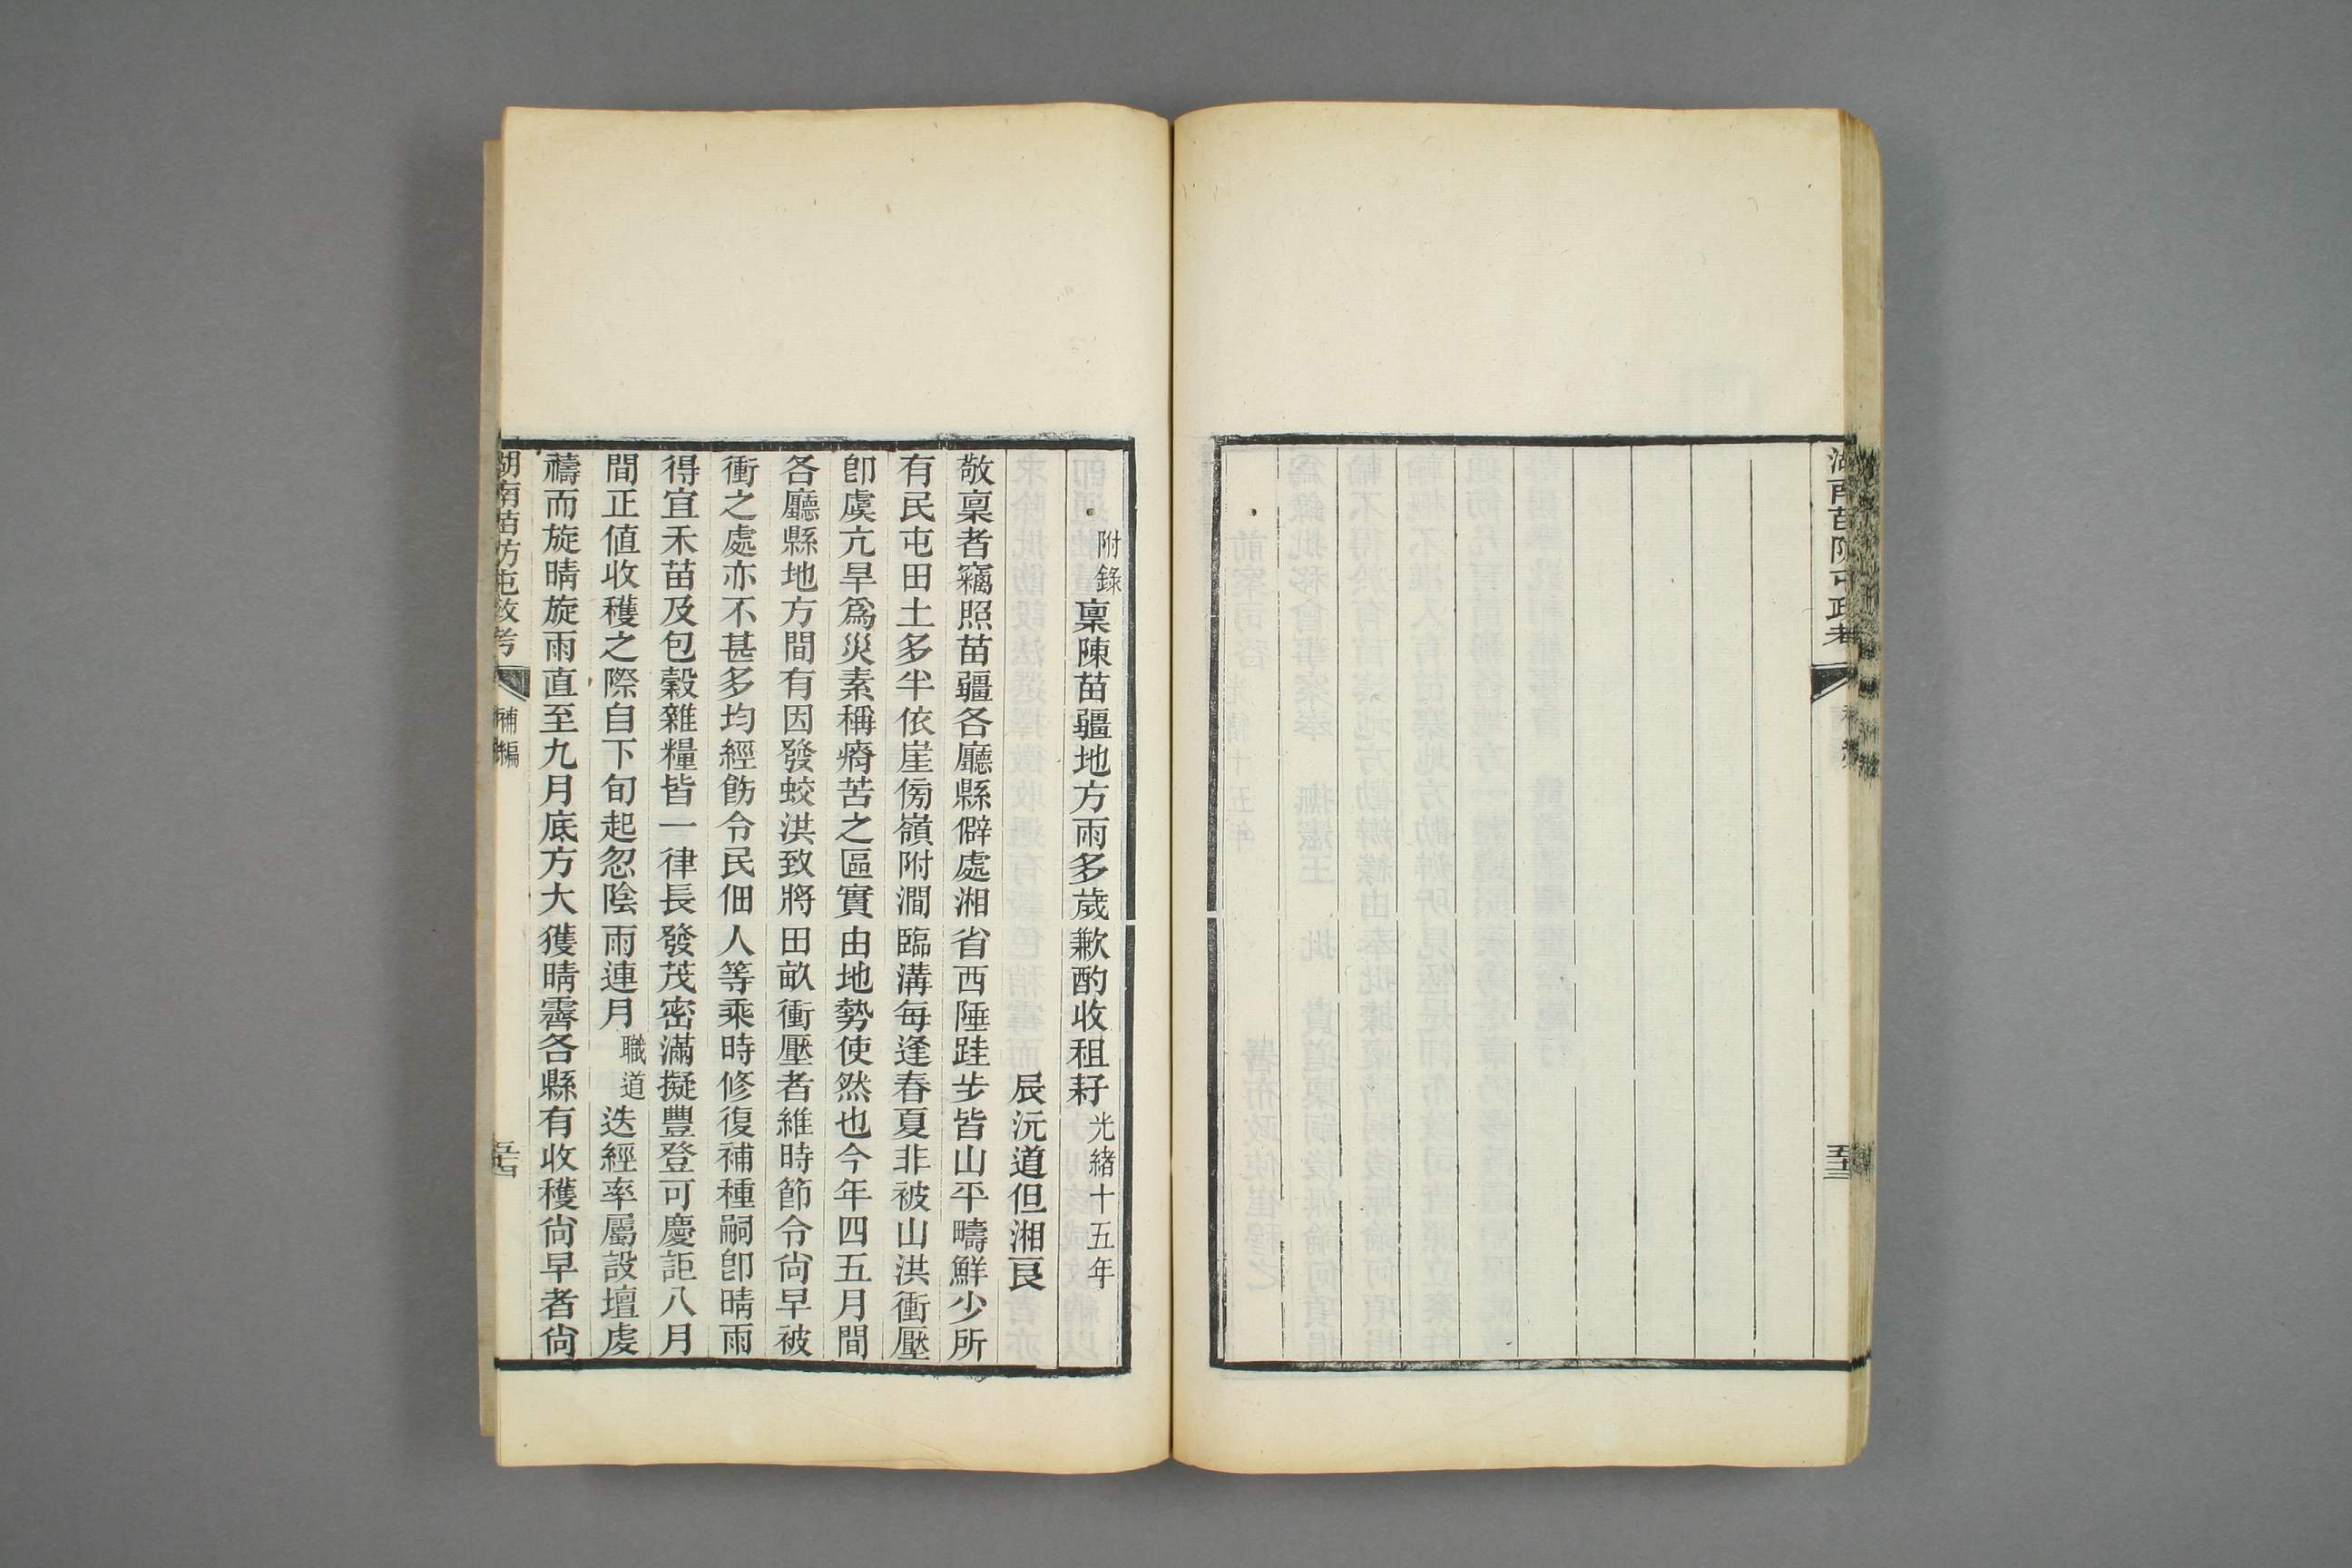 湖南苗防屯政考
五十三
附錄稟陳苗疆地方雨多歲歉酌收租籽光緒十五年
辰沅道但湘良
敬稟者竊照苗疆各廳縣僻處湘省西陲跬步皆山平疇鮮少所
有民屯田土多半依崖傍嶺附澗臨溝每逢春夏非被山洪衝壓
卽虞亢旱爲災素稱瘠苦之區實由地勢使然也今年四五月間
各廳縣地方間有因發蛟洪致將田畝衝壓者維時節令尙早被
衝之處亦不甚多均經飭令民佃人等乘時修復補種嗣卽晴雨
得宜禾苗及包穀雜糧皆一律長發茂密滿擬豐登可慶詎八月
間正值收穫之際自下旬起忽陰雨連月職道迭經率屬設壇虔
禱而旋晴旋雨直至九月底方大獲晴霽各縣有收穫尙早者尙
湖南苗防屯政考
補編
五十四